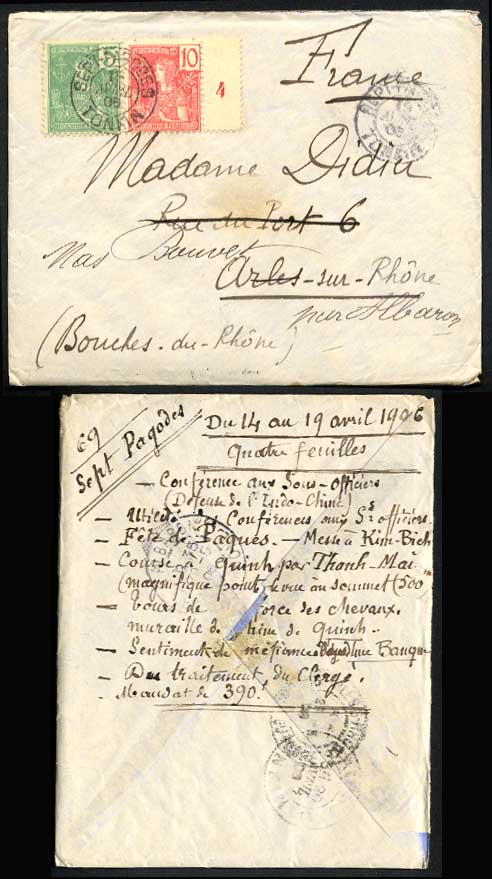 5
10
4
SEPT PAGODES
France
Madame Didier
Rue du Port 6
Mas Bouvet
Arles-sur-Rhône
par Albaron
(Bouches-du-Rhône)
69
Sept Pagodes
Du 14 au 19 avril 1906
Quatre feuilles
— Conférence aux Sous-officiers
(Défense de l'Indo-Chine)
— Conférences aux Ss officiers.
— Fête de Pâques. — Messe à Kim-Bich
— Course à Quinh par Thanh-Mai
(magnifique point de vue au sommet (500
— tours de force des chevaux.
muraille de Chine de Quinh.
— Sentiment de méfiance Banque
— Du traitement du Clergé.
— Mandat de 390.